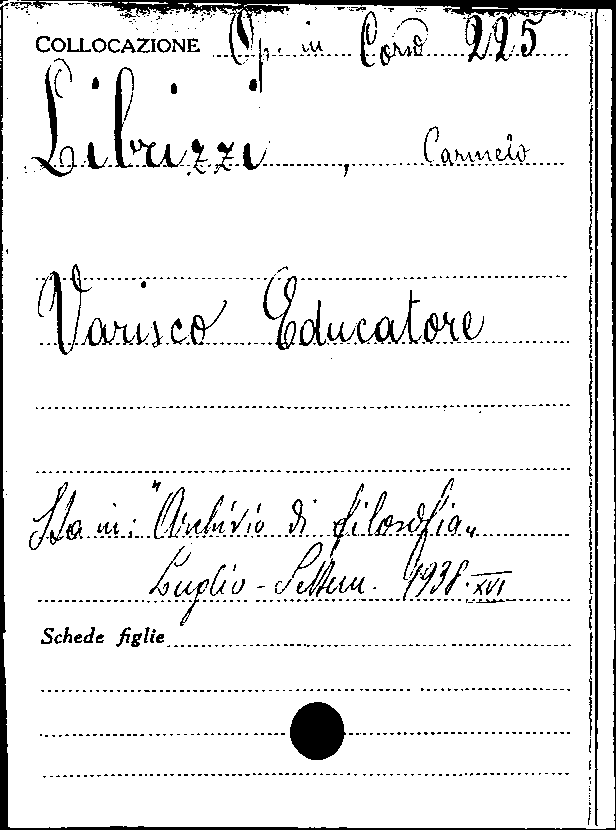 COLLOCAZIONE Op. in Corso 225
Librizzi, Carmelo
Varisco Educatore
Sta in: "Archivio di filosofia"
Luglio - Settem. 1938. XVI
Schede figlie